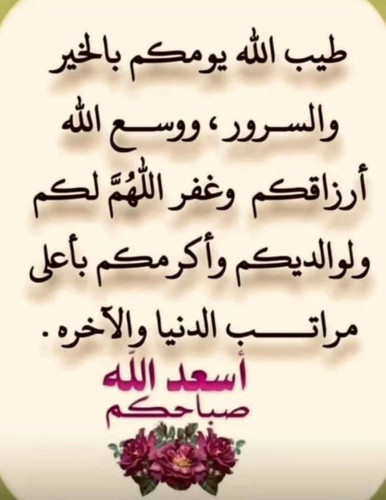 طيب الله يومكم بالخير
والسرور، ووسع الله
أرزاقكم وغفر اللهُمَّ لكم
ولوالديكم وأكرمكم بأعلى
مراتب الدنيا والآخره .
أسعد الله
صباحكم